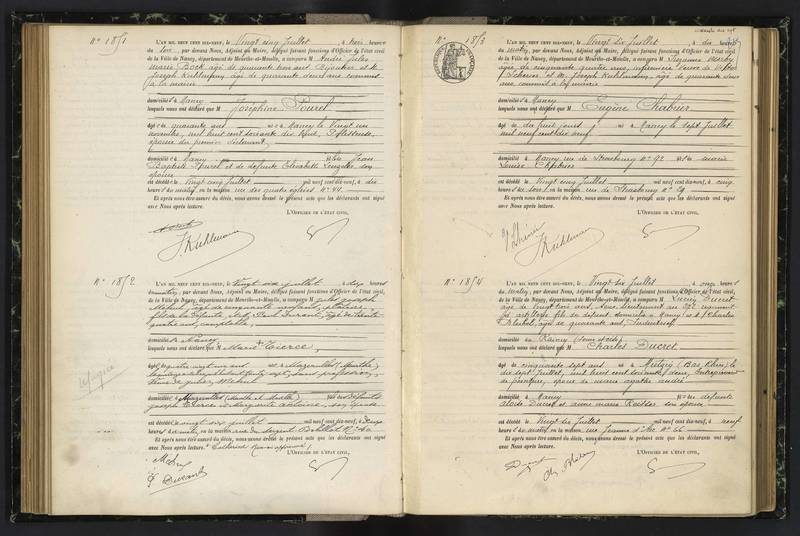 N° 1851
L'AN MIL NEUF CENT DIX-NEUF, le Vingt cinq Juillet, à trois heures
du soir, par devant Nous, Adjoint au Maire, délégué faisant fonctions d'Officier de l'état civil,
de la Ville de Nancy, département de Meurthe-et-Moselle, a comparu M André Jules
Marie Bock âgé de quarante trois ans Bijoutier et M
Joseph Kuhlmann, âgé de quarante deux ans commis
à la mairie
domicilié s à Nancy
lesquels nous ont déclaré que Joséphine
âgé e de quarante ans né e à Nancy le Vingt un
novembre, mil huit cent soixante dix huit,
épouse du premier déclarant,
domicilié e à Nancy fille Jean
Baptiste et de défunte Elisabeth son
épouse
est décédé e le Vingt cinq Juillet mil neuf cent dix-neuf, à dix
heures du matin, en la maison rue des quatre églises N° 44
Et après nous être assuré du décès, nous avons dressé le présent acte que les déclarants ont signé
avec Nous après lecture.
L'OFFICIER DE L'ÉTAT CIVIL,
J. Kuhlmann
N° 1852
L'AN MIL NEUF CENT DIX-NEUF, le Vingt six juillet à dix heures
du matin, par devant Nous, Adjoint au Maire, délégué faisant fonctions d'Officier de l'état civil,
de la Ville de Nancy, département de Meurthe-et-Moselle, a comparu M Jules Joseph
âgé de cinquante neuf ans,
fils de la défunte, et Paul Durand, âgé de trente
quatre ans, comptable,
domicilié s à Nancy
lesquels nous ont déclaré que Marie Tierce,
âgé e de quatre vingt un ans née à Mazerulles (Meurthe)
sans profession,
domiciliée à Mazerulles (Meurthe et Moselle) fille des défunts
Joseph Tierce et Marguerite Antoine, son épouse
est décédé e le vingt six juillet mil neuf cent dix-neuf, à
heures du matin, en la maison rue du sergent Blandan N° 40
Et après nous être assuré du décès, nous avons dressé le présent acte que les déclarants ont signé
avec Nous après lecture. Catherine
L'OFFICIER DE L'ÉTAT CIVIL,
P. Durand
réfugiée
N° 1853
L'AN MIL NEUF CENT DIX-NEUF, le Vingt six Juillet, à dix heures
du matin, par devant Nous, Adjoint au Maire, délégué faisant fonctions d'Officier de l'état civil,
de la Ville de Nancy, département de Meurthe-et-Moselle, a comparu M Suzanne
âgée de cinquante ans, infirmière Veuve de Victor
et M. Joseph Kuhlmann, âgé de quarante deux
ans commis à la mairie
domicilié s à Nancy
lesquels nous ont déclaré que Eugène Chabrier
âgé de dix huit jours né à Nancy le sept Juillet
mil neuf cent dix neuf
domicilié à Nancy rue de Strasbourg N° 92 fils de Marie
Louise
est décédé le Vingt cinq Juillet mil neuf cent dix-neuf, à cinq
heures du soir, en la maison rue de Strasbourg N° 29
Et après nous être assuré du décès, nous avons dressé le présent acte que les déclarants ont signé
avec Nous après lecture.
L'OFFICIER DE L'ÉTAT CIVIL,
J. Kuhlmann
N° 1854
L'AN MIL NEUF CENT DIX-NEUF, le Vingt six Juillet à onze heures
du matin, par devant Nous, Adjoint au Maire, délégué faisant fonctions d'Officier de l'état civil,
de la Ville de Nancy, département de Meurthe-et-Moselle, a comparu M Lucien Ducret
âgé de vingt trois ans, Sous lieutenant au régiment
d'artillerie fils du défunt domicilié à Nancy et Charles
âgé de quarante ans, Industriel
domicilié à Raincy (Seine et Oise)
lesquels nous ont déclaré que Charles Ducret
âgé de cinquante sept ans né à Mutzig (Bas Rhin) le
dix sept Juillet, mil huit cent soixante deux, Entrepreneur
de peinture, époux de Marie Agathe
domicilié à Nancy fils de défunts
Ducret et Anne Marie son épouse
est décédé le Vingt six Juillet mil neuf cent dix-neuf, à neuf
heures du matin en la maison rue Jeanne d'Arc N° 66
Et après nous être assuré du décès, nous avons dressé le présent acte que les déclarants ont signé
avec Nous après lecture.
L'OFFICIER DE L'ÉTAT CIVIL,
Ducret